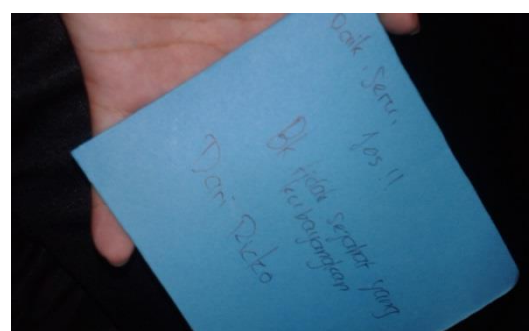 Baik, Seru, Jos !!
BK tidak sejahat yang
kubayangkan
Dari Ricko